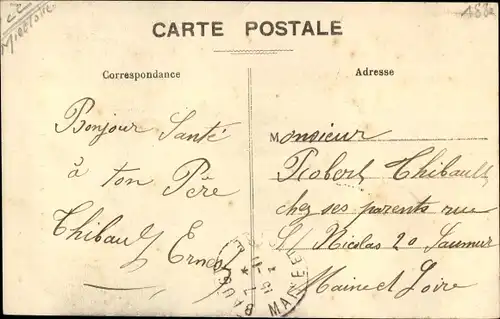 CARTE POSTALE
Correspondance
Adresse
Bonjour Santé
à ton Père
Thibault Ernest
Monsieur
Robert Thibault
chez ses parents rue
St Nicolas 20 Saumur
Maine et Loire
BAUGÉ
MAINE ET